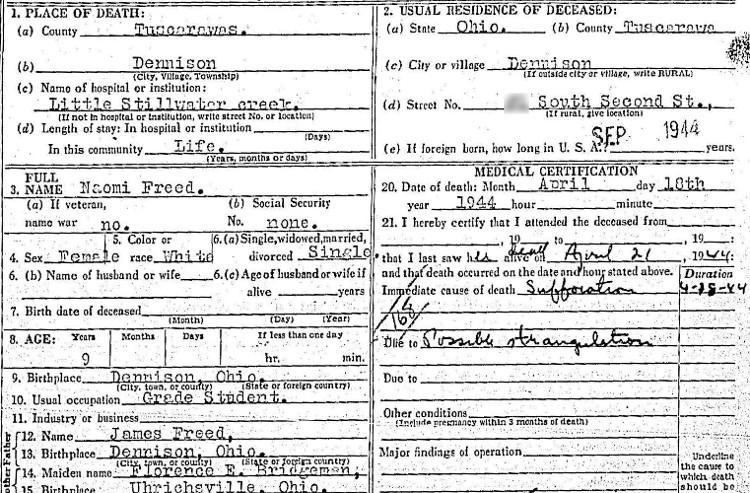 1. PLACE OF DEATH:
(a) County Tuscarawas.
(b) Dennison
(City, Village, Township)
(c) Name of hospital or institution:
Little Stillwater creek.
(If not in hospital or institution, write street No. or location)
(d) Length of stay: In hospital or institution
(Days)
In this community Life.
(Years, months or days)
2. USUAL RESIDENCE OF DECEASED:
(a) State Ohio. (b) County Tuscarawa
(c) City or village Dennison
(If outside city or village, write RURAL)
(d) Street No. South Second St.,
(If rural, give location)
SEP 1944
(e) If foreign born, how long in U. S. A.? years.
FULL
3. NAME Naomi Freed.
(a) If veteran, (b) Social Security
name war no. No. none.
5. Color or 6.(a) Single, widowed, married,
4. Sex Female race White divorced Single
6. (b) Name of husband or wife 6.(c) Age of husband or wife if
alive years
7. Birth date of deceased
(Month) (Day) (Year)
8. AGE: Years Months Days If less than one day
9 hr. min.
9. Birthplace Dennison, Ohio.
(City, town, or county) (State or foreign country)
10. Usual occupation Grade Student.
11. Industry or business
Father
12. Name James Freed,
13. Birthplace Dennison, Ohio.
(City, town, or county) (State or foreign country)
14. Maiden name Florence E. Bridgeman,
15. Birthplace Uhrichsville, Ohio.
MEDICAL CERTIFICATION
20. Date of death: Month April day 18th
year 1944 hour minute
21. I hereby certify that I attended the deceased from
, 19 to , 19 :
that I last saw her dead alive on April 21 , 1944:
and that death occurred on the date and hour stated above.
Duration
Immediate cause of death Suffocation
Due to Possible strangulation
Due to
Other conditions
(Include pregnancy within 3 months of death)
Major findings of operation
Underline
the cause to
which death
should be